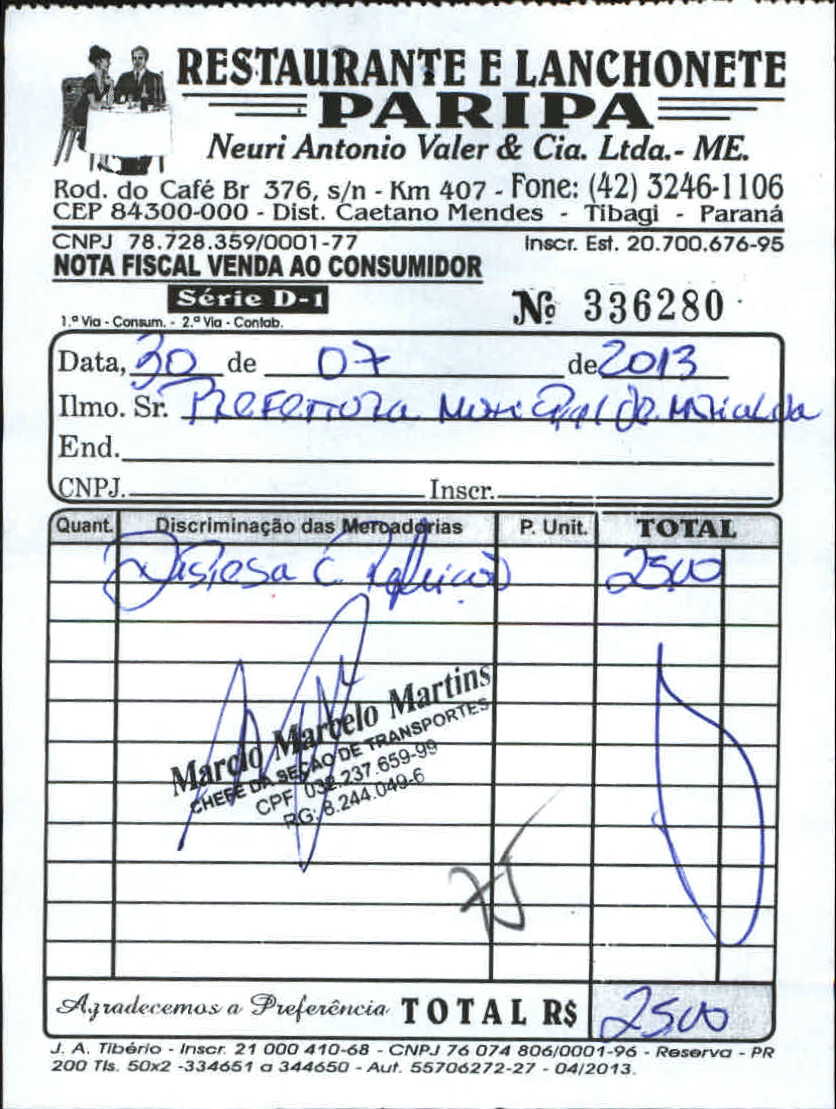 RESTAURANTE E LANCHONETE
PARIPA
Neuri Antonio Valer & Cia. Ltda.- ME.
Rod. do Café Br 376, s/n - Km 407 - Fone: (42) 3246-1106
CEP 84300-000 - Dist. Caetano Mendes - Tibagi - Paraná
CNPJ 78.728.359/0001-77 Inscr. Est. 20.700.676-95
NOTA FISCAL VENDA AO CONSUMIDOR
Série D-1
1.ª Via - Consum. - 2.ª Via - Contab.
Nº 336280
Data, 30 de 07 de 2013
Ilmo. Sr. Prefeitura Municipal de
End.
CNPJ. Inscr.
Quant. Discriminação das Mercadorias P. Unit. TOTAL
Despesa C. Refeição 2500
Marcio Marcelo Martins
CHEFE DA SEÇÃO DE TRANSPORTES
CPF: 032.237.659-99
RG: 8.244.049-6
Agradecemos a Preferência TOTAL R$ 2500
J. A. Tibério - Inscr. 21 000 410-68 - CNPJ 76 074 806/0001-96 - Reserva - PR
200 Tls. 50x2 -334651 a 344650 - Aut. 55706272-27 - 04/2013.